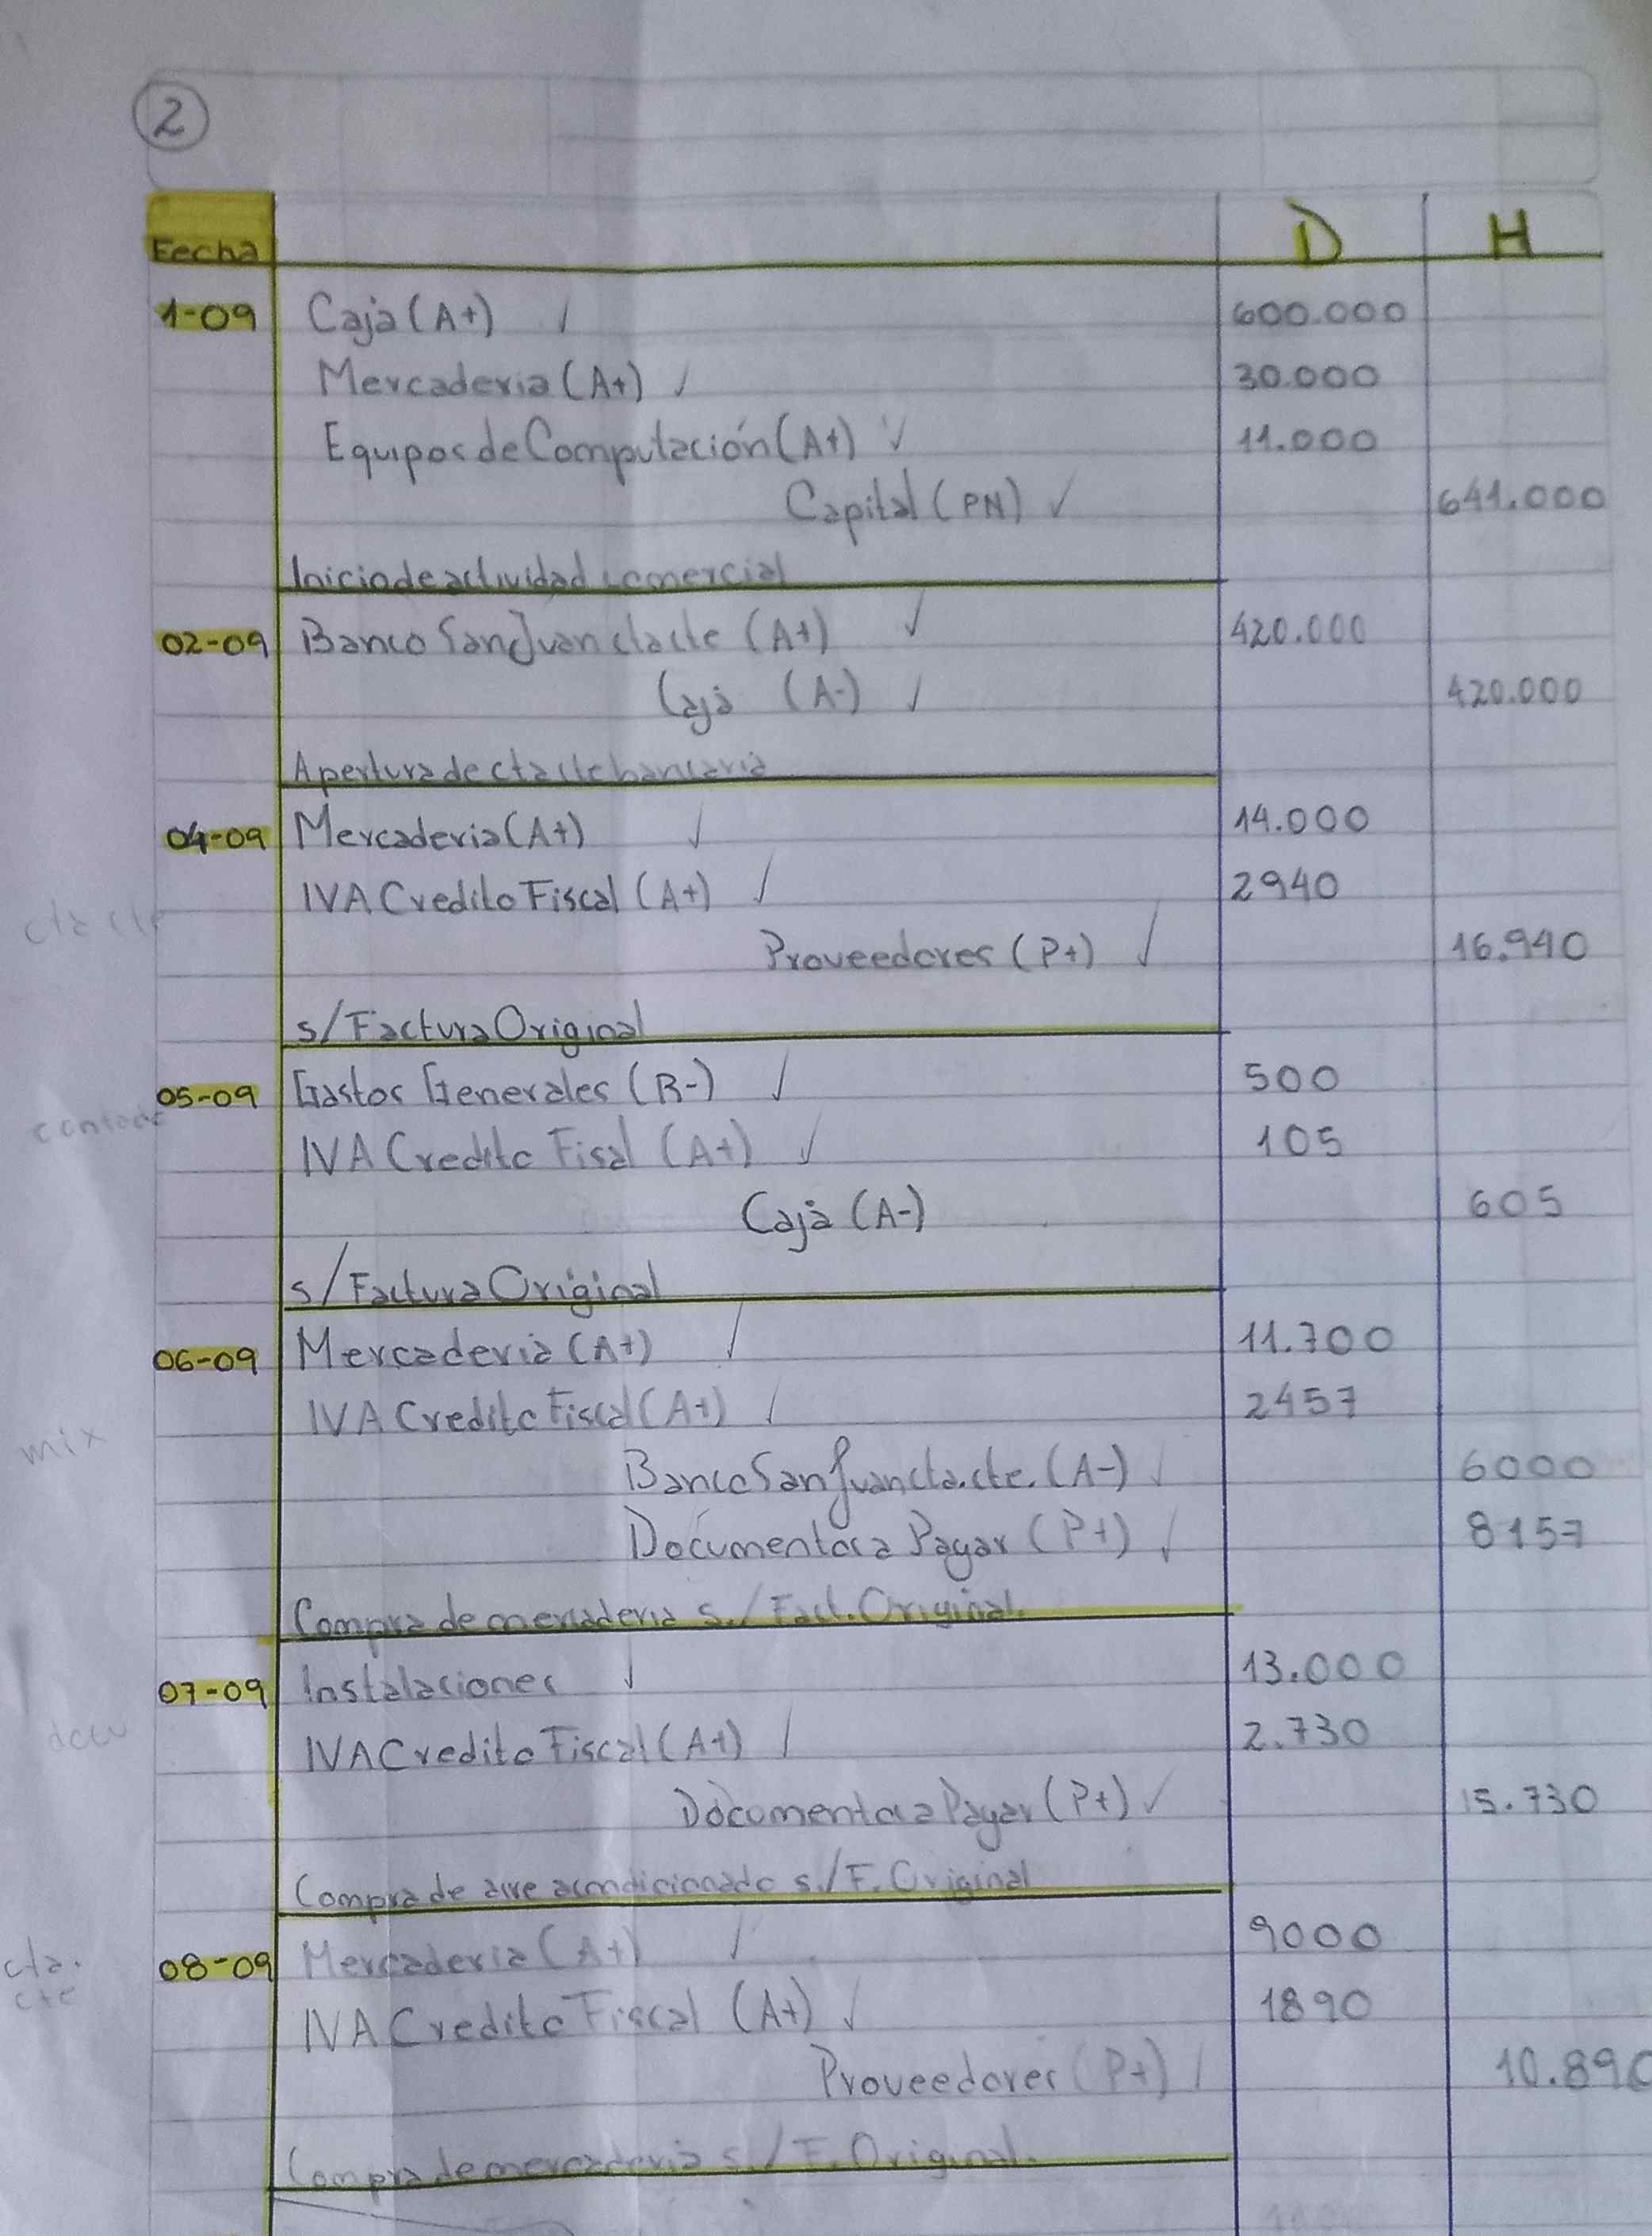 2
Fecha D H
1-09 Caja (A+) ✓ 600.000
Mercaderia (A+) ✓ 30.000
Equipos de Computación (A+) ✓ 11.000
Capital (PN) ✓ 641.000
Inicio de actividad comercial
02-09 Banco San Juan cta cte (A+) ✓ 420.000
Caja (A-) ✓ 420.000
Apertura de cta cte bancaria
04-09 Mercaderia (A+) ✓ 14.000
IVA Credito Fiscal (A+) ✓ 2940
cta cte
Proveedores (P+) ✓ 16.940
s/Factura Original
05-09 Gastos Generales (R-) ✓ 500
contado
IVA Credito Fisal (A+) ✓ 105
Caja (A-) 605
s/Factura Original
06-09 Mercaderia (A+) ✓ 11.700
IVA Credito Fiscal (A+) ✓ 2457
mix
Banco San Juan cta.cte. (A-) ✓ 6000
Documentos a Pagar (P+) ✓ 8157
Compra de mercaderia s./Fact. Original.
07-09 Instalaciones ✓ 13.000
docu
IVA Credito Fiscal (A+) ✓ 2.730
Documentos a Pagar (P+) ✓ 15.730
Compra de aire acondicionado s./F. Original
08-09 Mercaderia (A+) ✓ 9000
cta.
cte
IVA Credito Fiscal (A+) ✓ 1890
Proveedores (P+) ✓ 10.890
Compra de mercaderia s./F. Original.